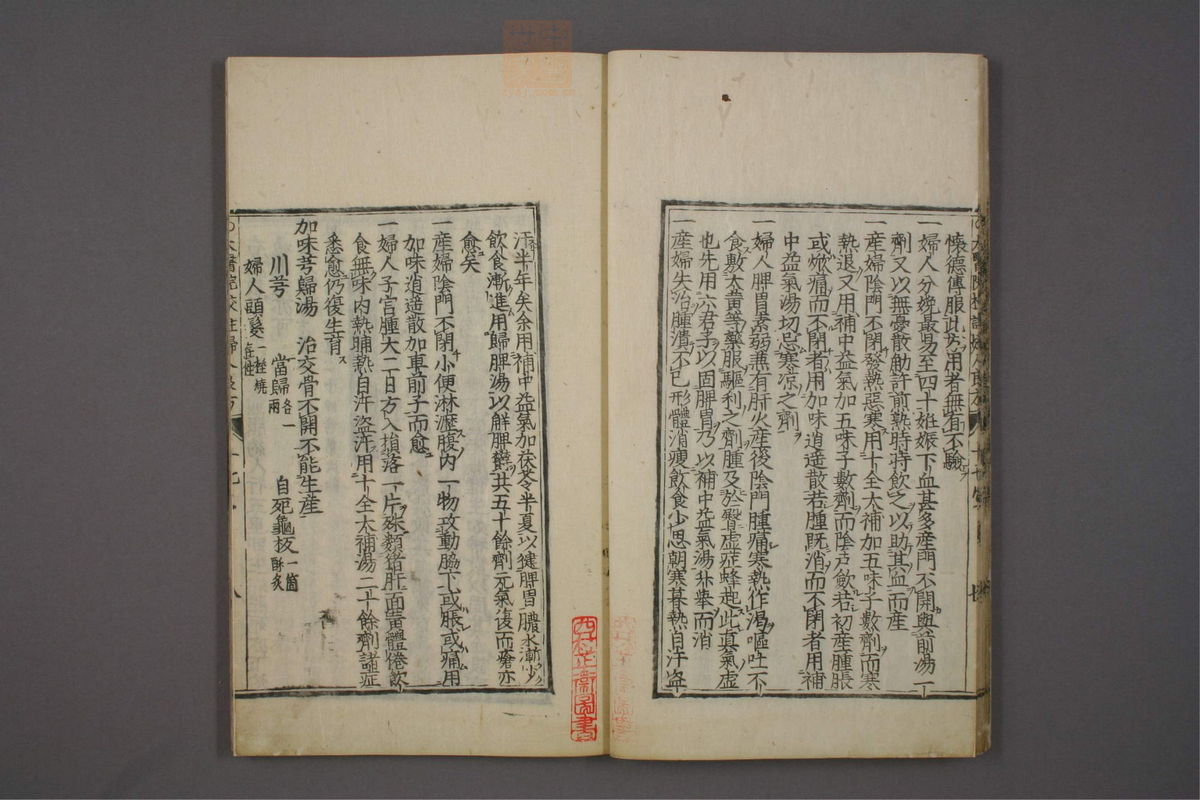 懷德傳服此方用者無有不驗
一婦人分娩最易至四十妊娠下血甚多產門不開與前湯一
劑又以無憂散斛許前熟時時飲之以助其血而產
一產婦陰門不閉發熱惡寒用十全大補加五味子數劑而寒
熱退又用補中益氣加五味子數劑而陰戶飲若初產腫脹
或焮痛而不閉者用加味逍遙散若腫既消而不閉者用補
中益氣湯切忌寒凉之劑
一婦人脾胃素弱兼有肝火產後陰門腫痛寒熱作渴嘔吐不
食敷大黃等藥服驅利之劑腫及於臀虛症蜂起此真氣虛
也先用六君子以固脾胃乃以補中益氣湯升舉而消
一產婦失治腫潰不已形體消瘦飲食少思朝寒暮熱自汗盗
汗半年矣余用補中益氣加茯苓半夏以健脾胃膿水漸少
飲食漸進用歸脾湯以解脾欝共五十餘劑元氣復而瘡亦
愈矣
一產婦陰門不閉小便淋瀝腹内一物攻動脇下或脹或痛用
加味逍遙散加車前子而愈
一婦人子宮腫大二日方入損落一片殊類猪肝面黃體倦飲
食無味内熱晡熱自汗盗汗用十全大補湯二十餘劑諸症
悉愈仍復生育
加味芎歸湯 治交骨不開不能生產
川芎 當歸各一兩 自死龜板一箇酥炙
婦人頭髮一握燒存性
太醫院校註婦人良方